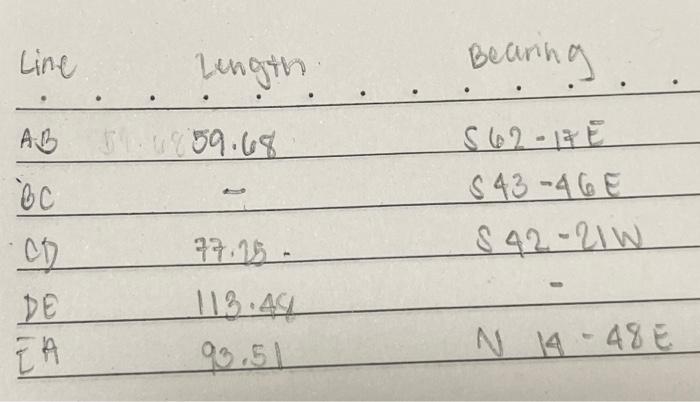 Line Length Bearing
AB 59.68 59.68 S 62-17 E
BC - S 43-46 E
CD 77.25 - S 42-21 W
DE 113.48 -
EA 93.51 N 14-48 E